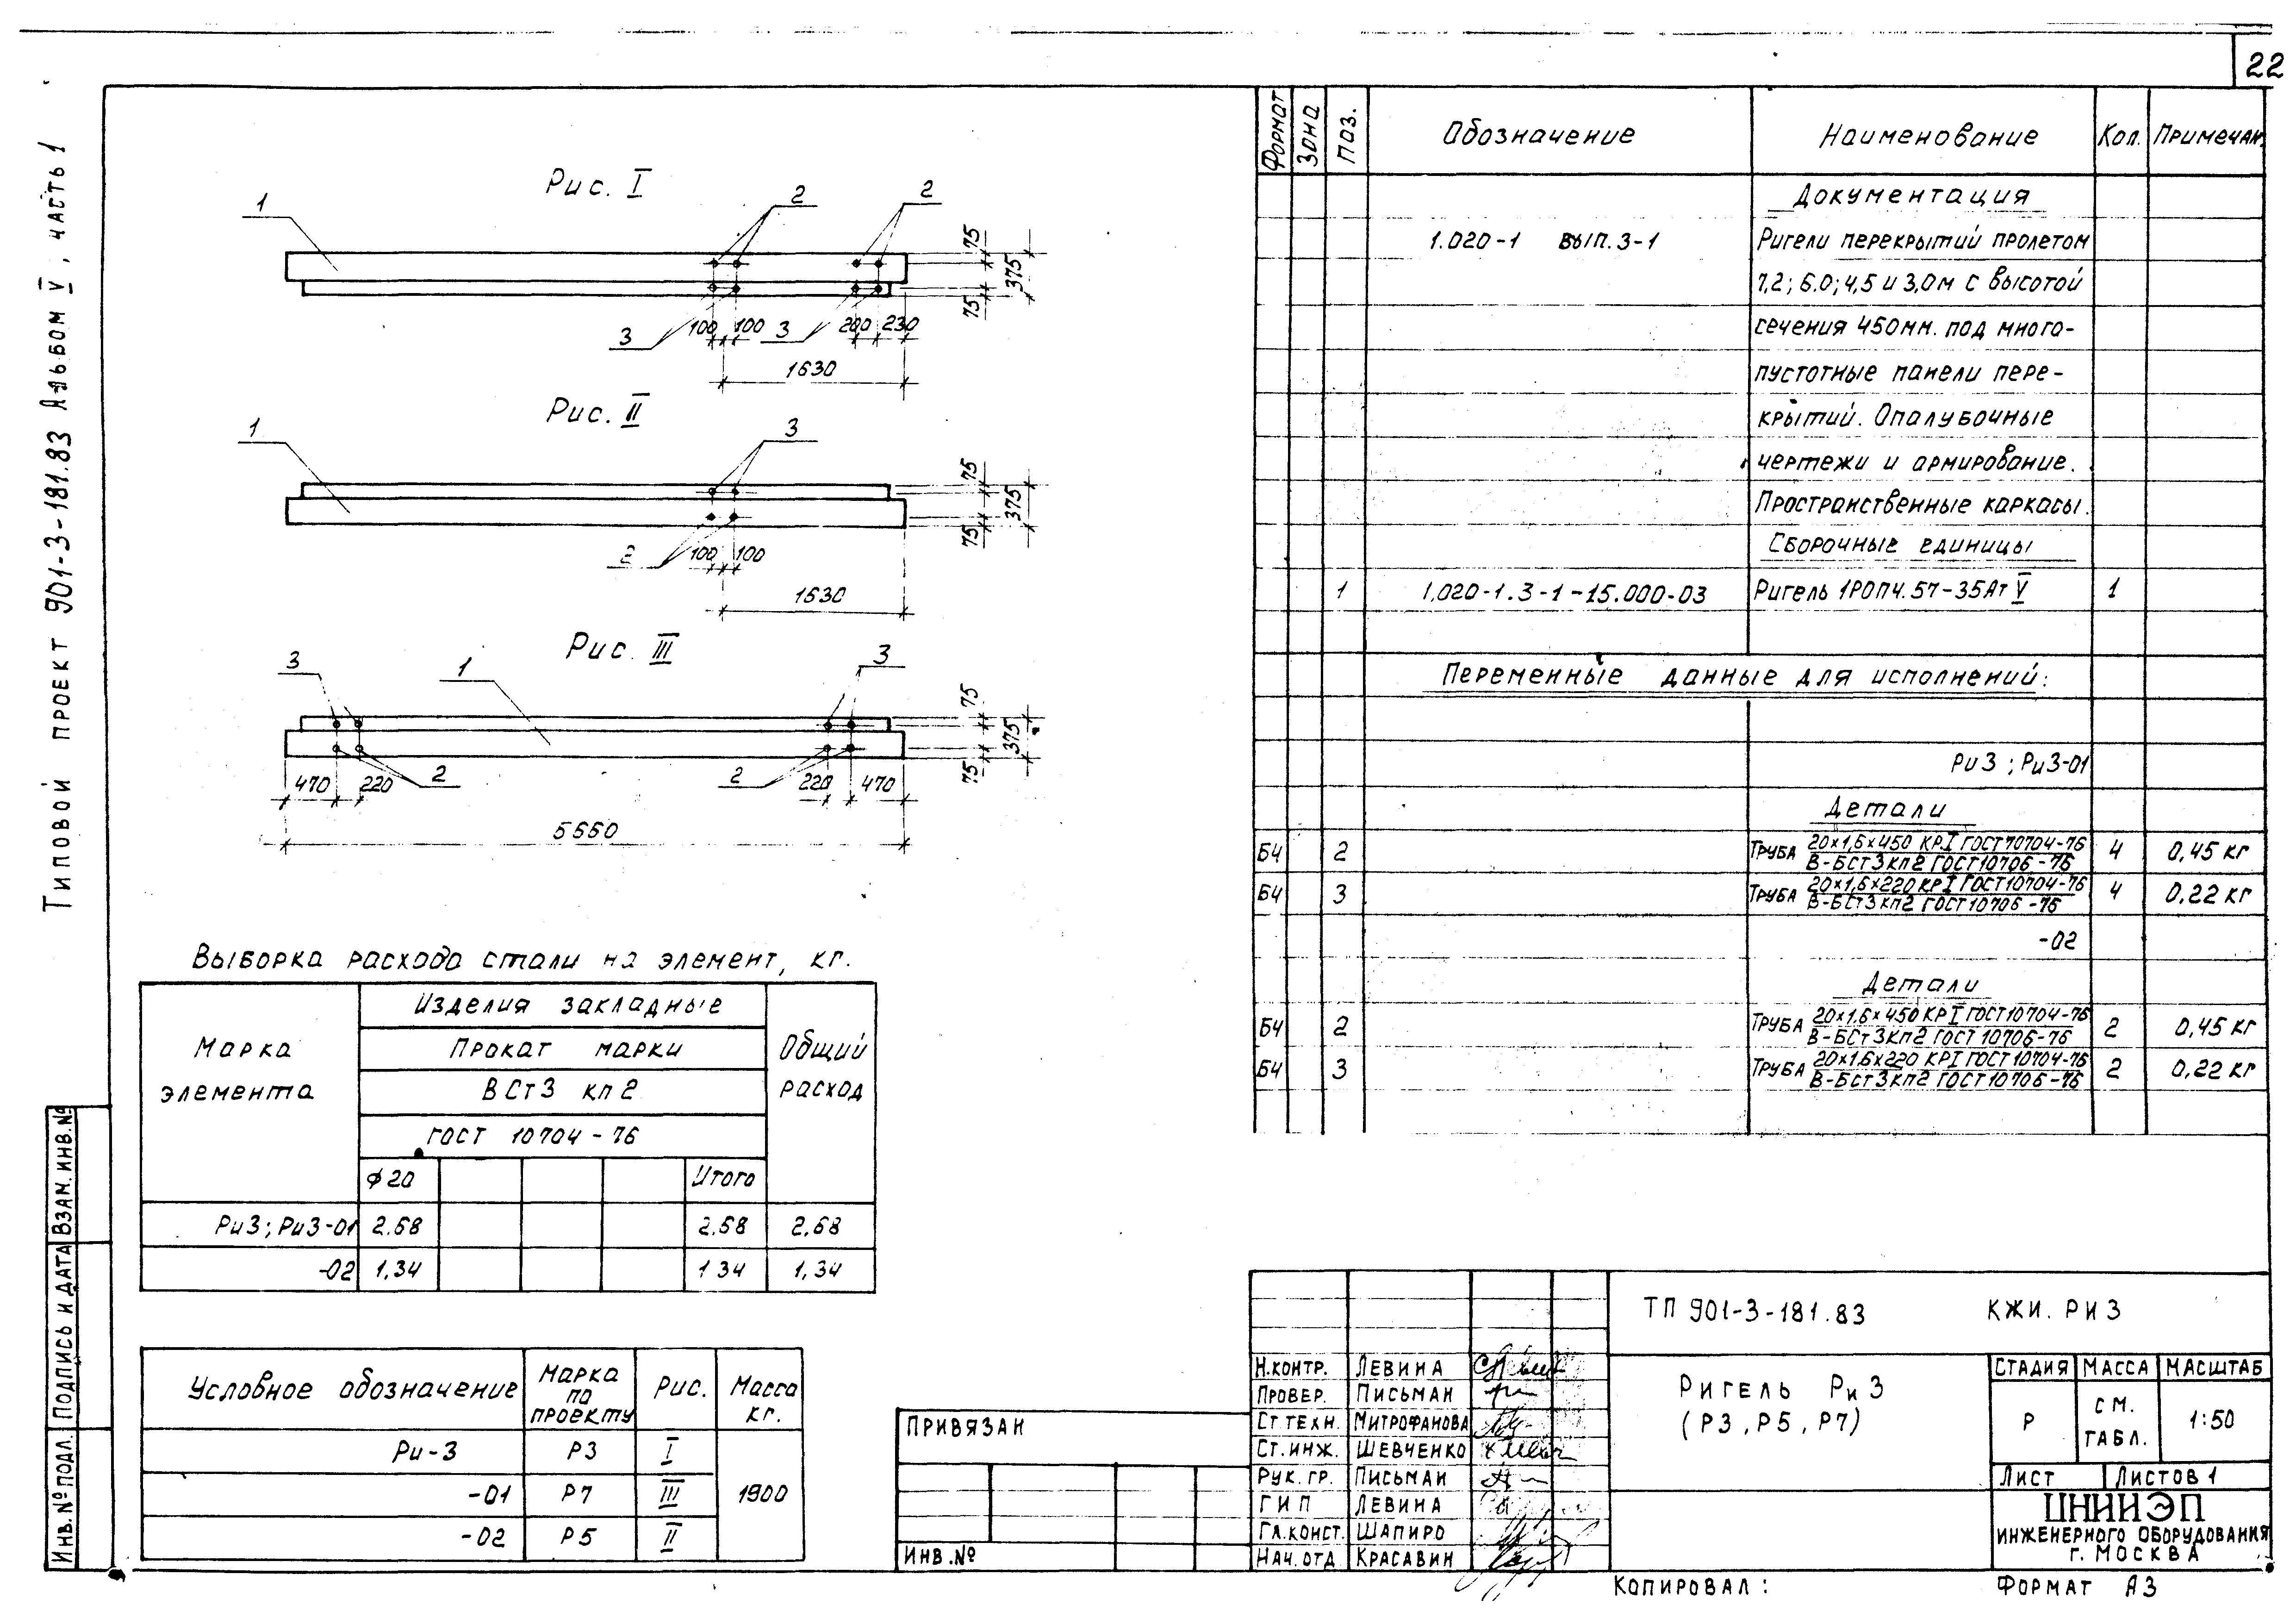 22
Типовой проект 901-3-181.83 Альбом V, часть 1
Рис. I
1
2
2
3
3
100
100
200
230
1630
75
75
375
Рис. II
1
3
2
100
100
1630
75
75
375
Рис. III
3
1
3
2
2
470
220
220
470
5660
75
75
375
Выборка расхода стали на элемент, кг.
Марка элемента
Изделия закладные
Общий расход
Прокат марки
ВСт3 кп2
ГОСТ 10704-76
ϕ20
Итого
Ри3; Ри3-01 2.68 2.68 2,68
-02 1,34 1 34 1,34
Условное обозначение
Марка по проекту
Рис.
Масса кг.
Ри-3 Р3 I
-01 Р7 III 1900
-02 Р5 II
Формат Зона Поз. Обозначение Наименование Кол. Примечан.
Документация
1.020-1 вып. 3-1 Ригели перекрытий пролетом
7,2; 6.0; 4,5 и 3,0м с высотой
сечения 450мм. под много-
пустотные панели пере-
крытий. Опалубочные
чертежи и армирование.
Пространственные каркасы.
Сборочные единицы
1 1.020-1.3-1-15.000-03 Ригель 1РОП4.57-35Ат V 1
Переменные данные для исполнений:
Ри3; Ри3-01
Детали
Б4 2 Труба 20×1,6×450 КР I ГОСТ10704-76 4 0,45 кг
В-БСт3кп2 ГОСТ10706-76
Б4 3 Труба 20×1,6×220 КР I ГОСТ10704-76 4 0,22 кг
В-БСт3кп2 ГОСТ10706-76
-02
Детали
Б4 2 Труба 20×1,6×450 КР I ГОСТ10704-76 2 0,45 кг
В-БСт3кп2 ГОСТ10706-76
Б4 3 Труба 20×1,6×220 КР I ГОСТ10704-76 2 0,22 кг
В-БСт3кп2 ГОСТ10706-76
Взам. инв. №
Подпись и дата
Инв. № подл.
Привязан
Инв. №
Н.контр. Левина
Провер. Письман
Ст техн. Митрофанова
Ст. инж. Шевченко
Рук. гр. Письман
ГИП Левина
Гл. конст. Шапиро
Нач. отд Красавин
ТП 901-3-181.83 КЖИ. РИ3
Ригель Ри3
(Р3, Р5, Р7)
Стадия Масса Масштаб
Р см. табл. 1:50
Лист Листов 1
ЦНИИЭП
инженерного оборудования
г. Москва
Копировал:
Формат А3